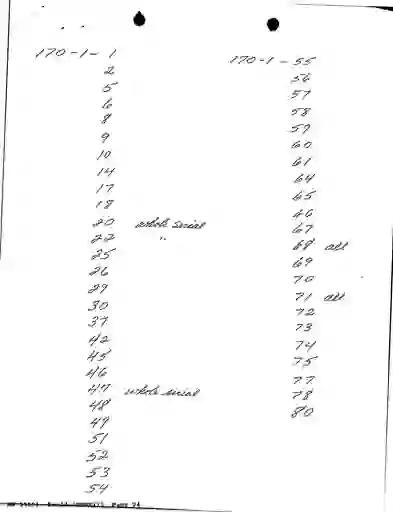 170-1-1
2
5
6
8
9
10
14
17
18
20 whole serial
22 "
25
26
29
30
37
42
45
46
47 whole serial
48
49
51
52
53
54
170-1-55
56
57
58
59
60
61
64
65
66
67
68 all
69
70
71 all
72
73
74
75
77
78
80
Page 74